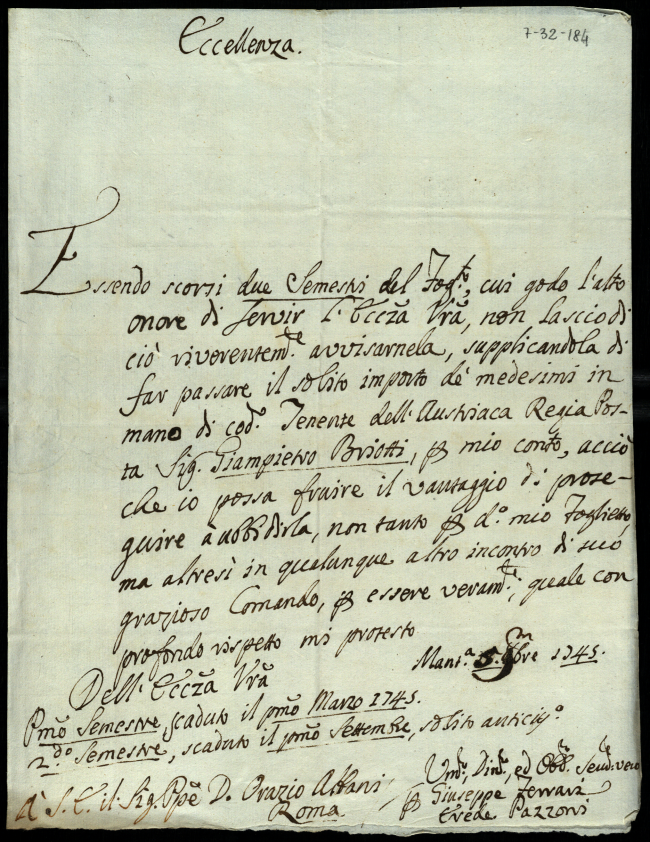 7-32-184
Eccellenza.
Essendo scorsi due Semestri del Fog.to, cui godo l'alto
onore di servir l'Eccza Vra, non lascio di
ciò riverentem.te avvisarnela, supplicandola di
far passare il solito importo de' medesimi in
mano di cod.o Tenente dell'Austriaca Regia Pos-
ta Sig. Giampietro Briotti, per mio conto, acciò
che io possa fruire il vantaggio di prose-
guire à ubbidirla, non tanto per d.o mio Foglietto,
ma altresì in qualunque altro incontro di suo
grazioso Comando, per essere veram.te, quale con
profondo rispetto mi protesto
Mant.a 9mbre 1745.
Dell'Eccza Vra
Pmo Semestre, scaduto il pmo Marzo 1745.
2do Semestre, scaduto il pmo Settembre, solito anticip.o
Um.o Div.o, ed Obb.o Serud. vero
per Giuseppe Ferrari
Erede Pazzoni
à S. E. il Sig. Ppe D. Orazio Albani
Roma